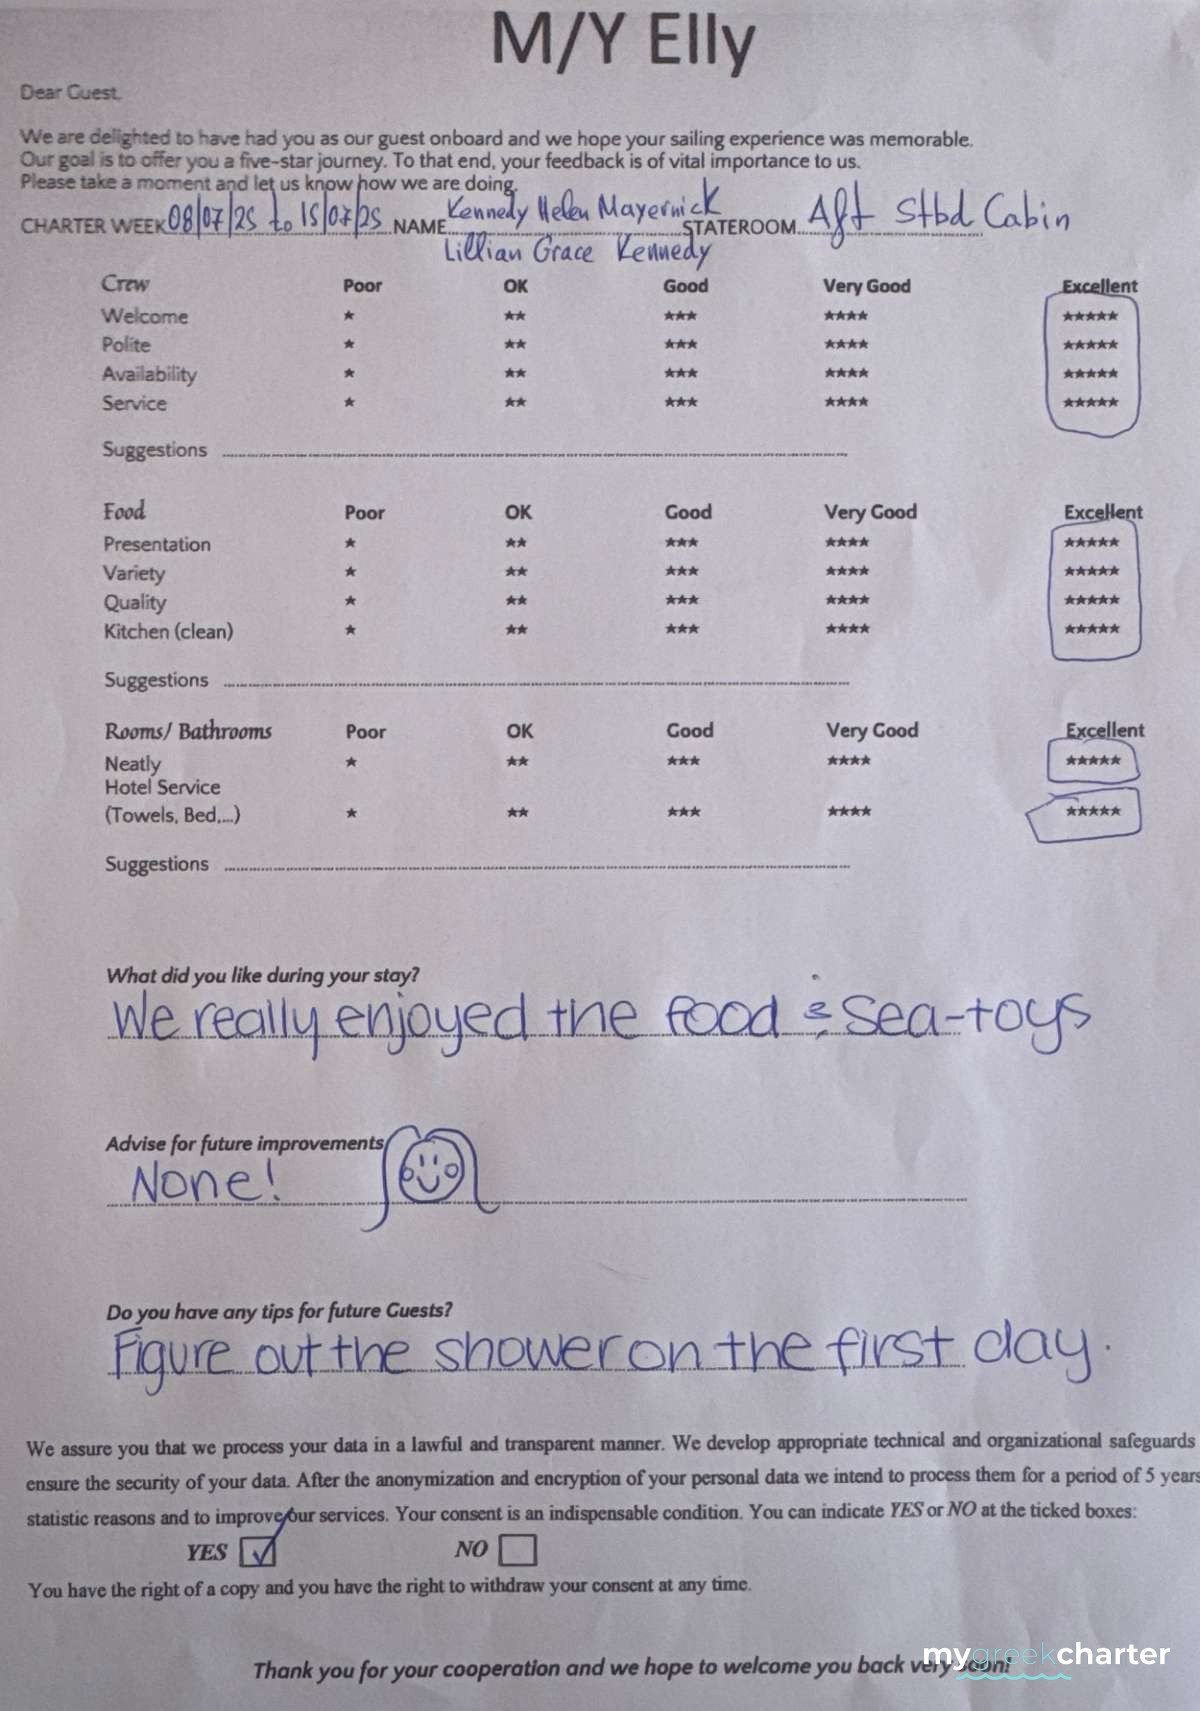 M/Y Elly
Dear Guest,
We are delighted to have had you as our guest onboard and we hope your sailing experience was memorable.
Our goal is to offer you a five-star journey. To that end, your feedback is of vital importance to us.
Please take a moment and let us know how we are doing.
CHARTER WEEK 08/07/25 to 15/07/25 NAME Kennedy Helen Mayernick STATEROOM Aft Stbd Cabin
Lillian Grace Kennedy
Crew Poor OK Good Very Good Excellent
Welcome ★ ★★ ★★★ ★★★★ ★★★★★
Polite ★ ★★ ★★★ ★★★★ ★★★★★
Availability ★ ★★ ★★★ ★★★★ ★★★★★
Service ★ ★★ ★★★ ★★★★ ★★★★★
Suggestions
Food Poor OK Good Very Good Excellent
Presentation ★ ★★ ★★★ ★★★★ ★★★★★
Variety ★ ★★ ★★★ ★★★★ ★★★★★
Quality ★ ★★ ★★★ ★★★★ ★★★★★
Kitchen (clean) ★ ★★ ★★★ ★★★★ ★★★★★
Suggestions
Rooms/ Bathrooms Poor OK Good Very Good Excellent
Neatly ★ ★★ ★★★ ★★★★ ★★★★★
Hotel Service
(Towels, Bed,...) ★ ★★ ★★★ ★★★★ ★★★★★
Suggestions
What did you like during your stay?
We really enjoyed the food & sea-toys
Advise for future improvements
None!
Do you have any tips for future Guests?
Figure out the shower on the first day.
We assure you that we process your data in a lawful and transparent manner. We develop appropriate technical and organizational safeguards
ensure the security of your data. After the anonymization and encryption of your personal data we intend to process them for a period of 5 years
statistic reasons and to improve our services. Your consent is an indispensable condition. You can indicate YES or NO at the ticked boxes:
YES NO
You have the right of a copy and you have the right to withdraw your consent at any time.
Thank you for your cooperation and we hope to welcome you back very soon!
mygreekcharter